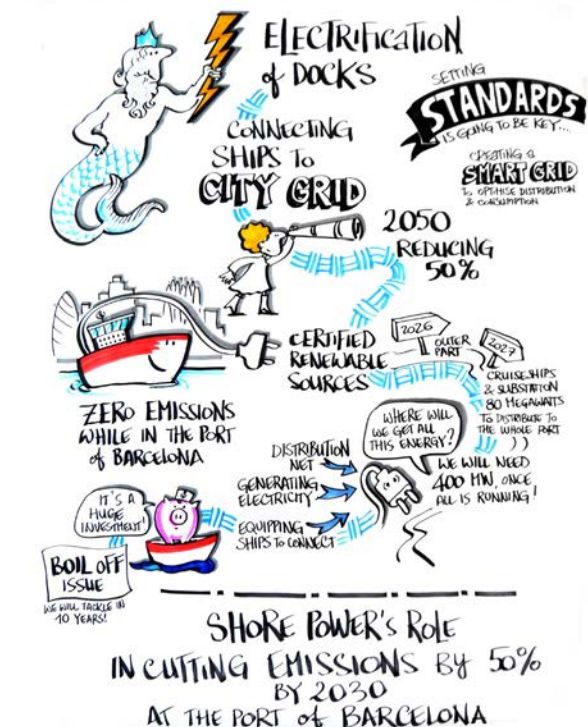 ELECTRIFICATION
of DOCKS
SETTING
STANDARDS
IS GOING TO BE KEY....
CONNECTING
SHIPS TO
CITY GRID
CREATING a
SMART GRID
TO OPTIMISE DISTRIBUTION
& CONSUMPTION
2050
REDUCING
50%
CERTIFIED
RENEWABLE
SOURCES
2026
OUTER
PART
2027
CRUISESHIPS
& SUBSTATION
80 MEGAWATTS
TO DISTRIBUTE TO
THE WHOLE PORT
ZERO EMISSIONS
WHILE IN THE PORT
of BARCELONA
WHERE WILL
WE GET ALL
THIS ENERGY?
WE WILL NEED
400 MW, ONCE
ALL IS RUNNING!
DISTRIBUTION
NET
GENERATING
ELECTRICITY
EQUIPPING
SHIPS TO CONNECT
IT'S A
HUGE
INVESTMENT!
BOIL OFF
ISSUE
WE WILL TACKLE IN
10 YEARS!
SHORE POWER'S ROLE
IN CUTTING EMISSIONS BY 50%
BY 2030
AT THE PORT of BARCELONA